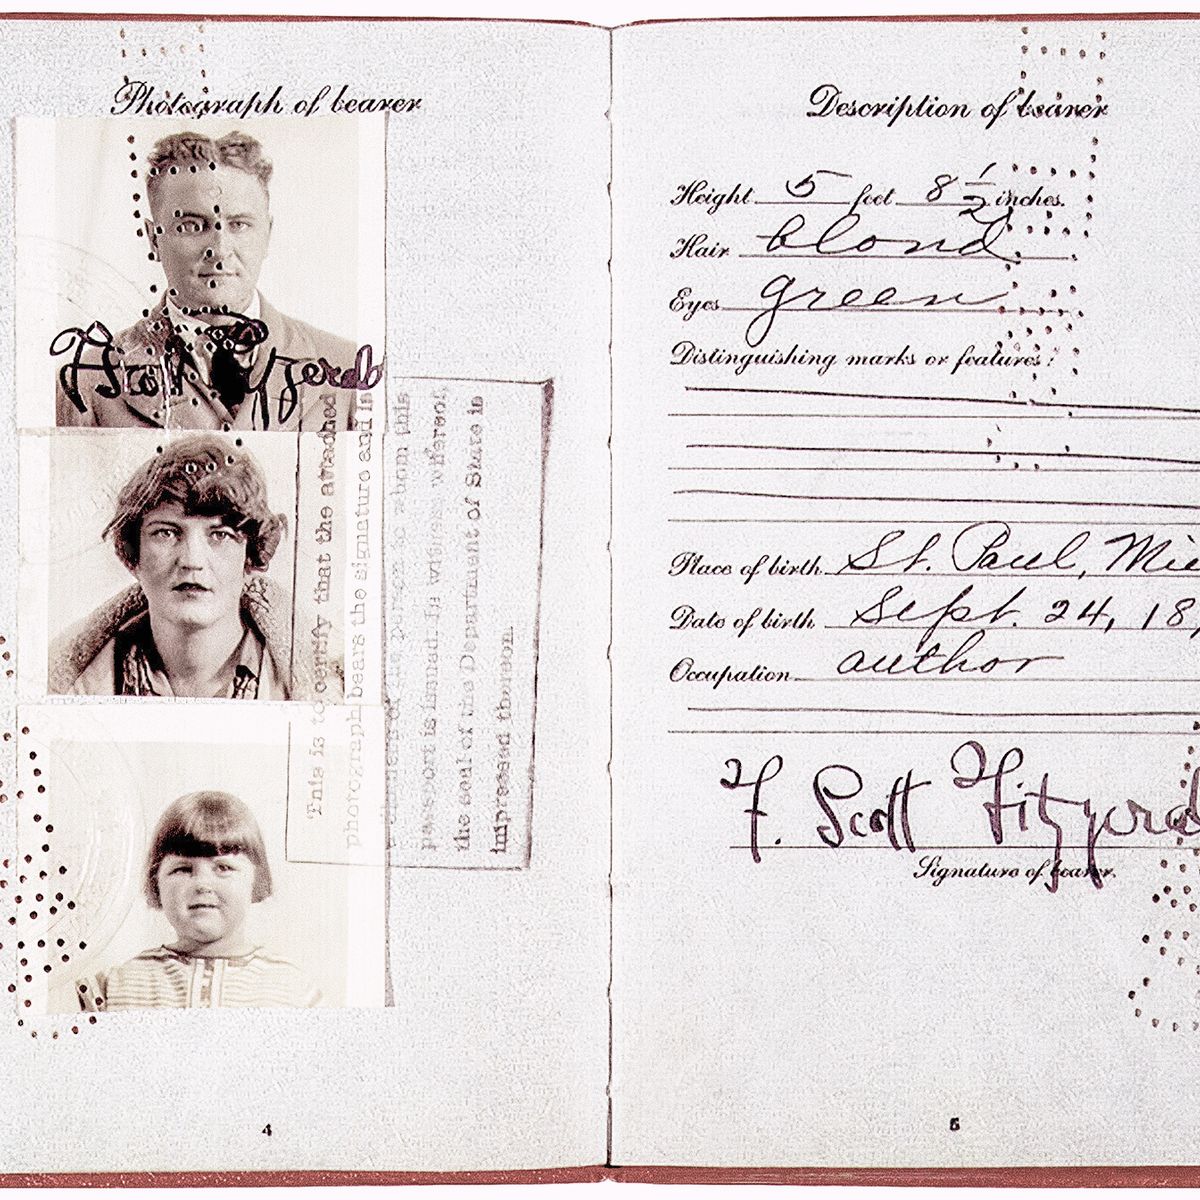 Photograph of bearer
This is to certify that the attached
photograph bears the signature and is
a likeness of the person to whom this
passport is issued. In witness whereof,
the seal of the Department of State is
impressed thereon.
4
Description of bearer
Height 5 feet 8 1/2 inches.
Hair blond
Eyes green
Distinguishing marks or features:
Place of birth St. Paul, Mi
Date of birth Sept. 24, 18
Occupation author
F. Scott Fitzgerald
Signature of bearer.
5